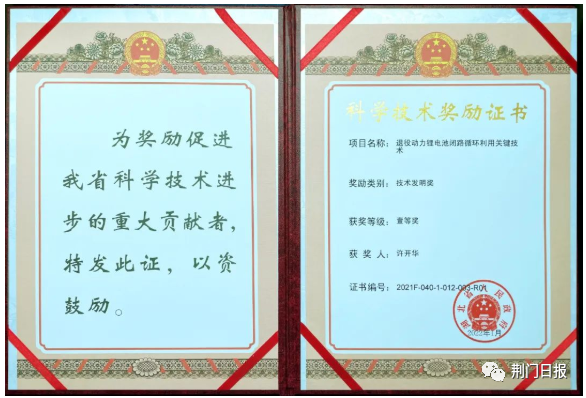 为奖励促进
我省科学技术进
步的重大贡献者,
特发此证，以资
鼓励。
科学技术奖励证书
项目名称: 退役动力锂电池闭路循环利用关键技
术
奖励类别: 技术发明奖
获奖等级: 壹等奖
获 奖 人: 许开华
证书编号: 2021F-040-1-012-003-R01
湖北省人民政府
2022年1月
荆门日报